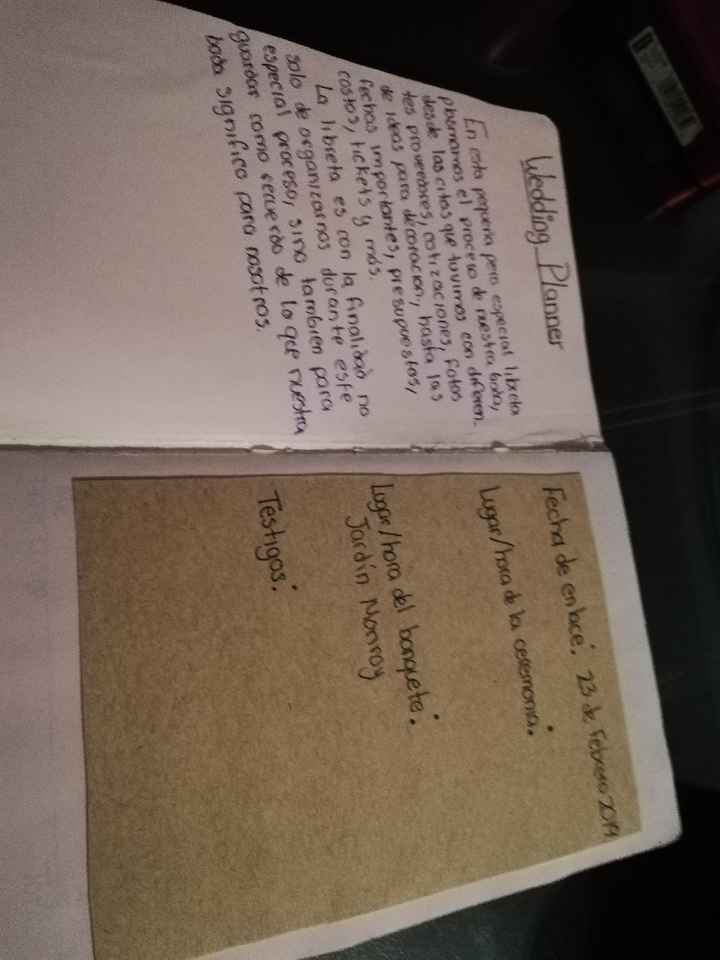 Wedding Planner
En esta pequeña pero especial libreta
plasmamos el proceso de nuestra boda,
desde las citas que tuvimos con diferen-
tes proveedores, cotizaciones, fotos
de ideas para decoración, hasta las
fechas importantes, presupuestos,
costos, tickets y más.
La libreta es con la finalidad no
solo de organizarnos durante este
especial proceso, sino también para
guardar como recuerdo de lo que nuestra
boda significo para nosotros.
Fecha de enlace: 23 de Febrero 2019
Lugar/hora de la ceremonia:
Lugar/hora del banquete:
Jardín Monroy
Testigos: